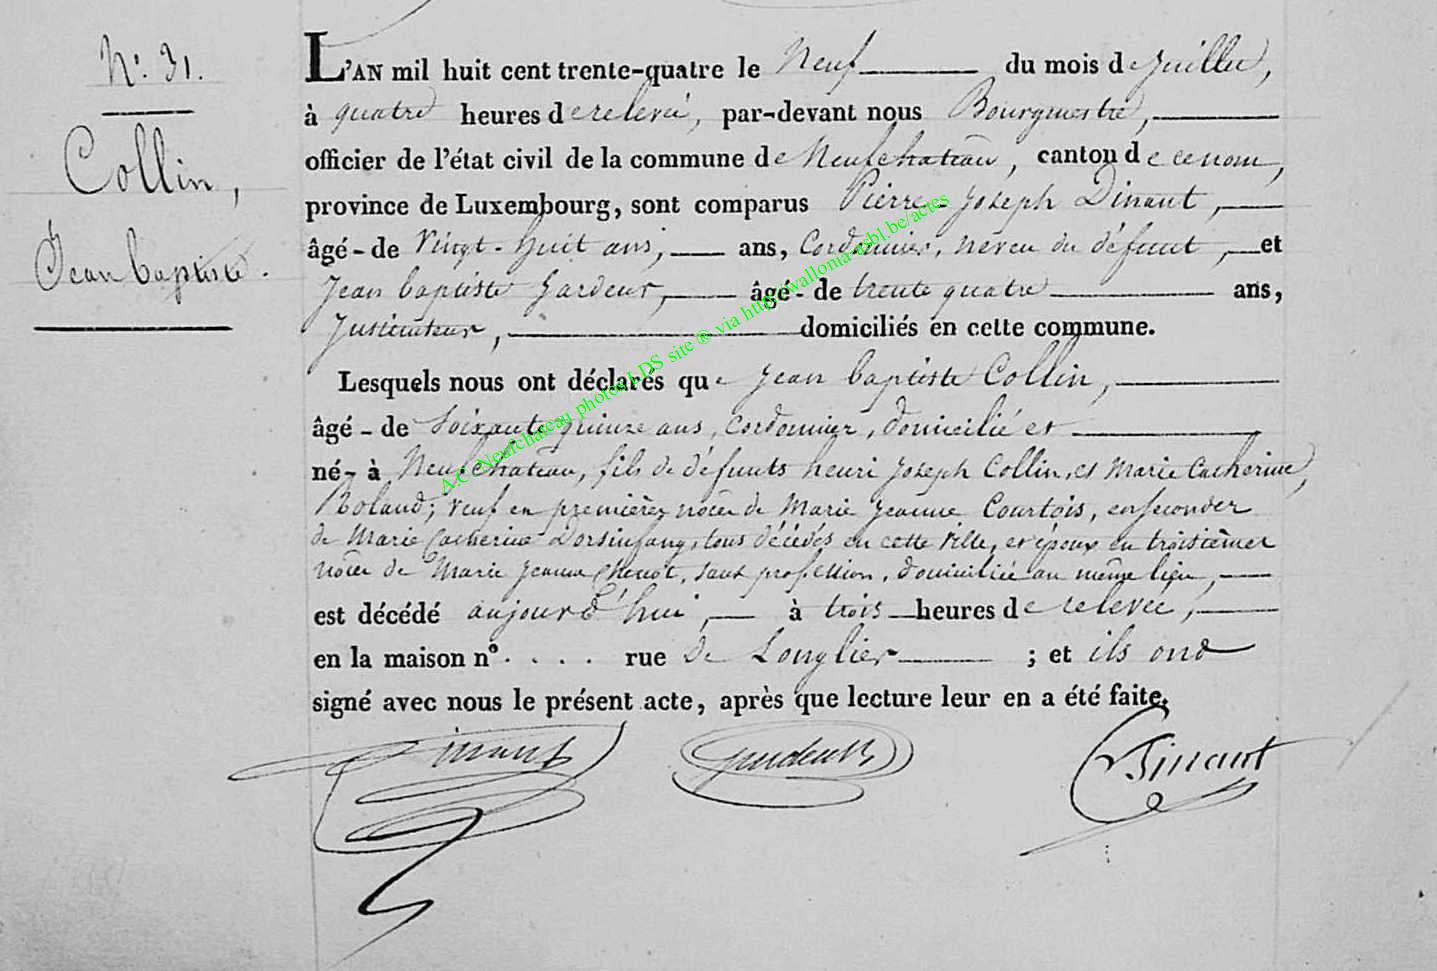 N°. 31.
Collin,
Jean baptiste.
L'AN mil huit cent trente-quatre le Neuf du mois de Juillet,
à quatre heures de relevée, par-devant nous Bourgmestre,
officier de l'état civil de la commune de Neufchateau, canton de ce nom,
province de Luxembourg, sont comparus Pierre-Joseph Dinant,
âgé - de Vingt-huit ans, ans, Cordonnier, neveu du défunt, et
Jean baptiste Gardeur, âgé - de trente quatre ans,
Instituteur, domiciliés en cette commune.
Lesquels nous ont déclarés que Jean baptiste Collin,
âgé - de Soixante quinze ans, Cordonnier, domicilié et
né - à Neufchateau, fils de défunts henri Joseph Collin, et Marie Catherine
Roland; veuf en premières nôces de Marie Jeanne Courtois, en secondes
de Marie Catherine tous décédés en cette ville, et époux en troisièmes
nôces de Marie Jeanne sans profession, domiciliée au même lieu,
est décédé aujourd'hui, à trois heures de relevée,
en la maison n° . . . . rue de Longlier ; et ils ont
signé avec nous le présent acte, après que lecture leur en a été faite.
Dinant Gardeur Dinant
A.C. Neufchateau photos LDS site ® via http://wallonia-asbl.be/actes